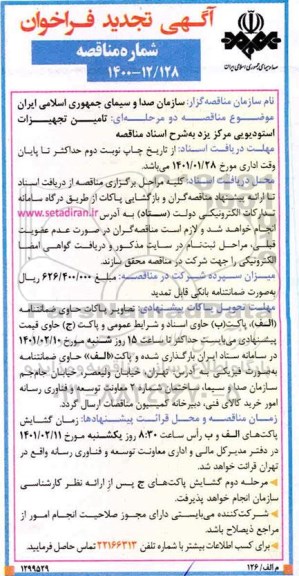 آگهی تجدید فراخوان
شماره مناقصه
۱۴۰۰-۱۲/۱۲۸
صدا و سیمای جمهوری اسلامی ایران
نام سازمان مناقصه‌گزار: سازمان صدا و سیمای جمهوری اسلامی ایران
موضوع مناقصه دو مرحله‌ای: تامین تجهیزات
استودیویی مرکز یزد به‌شرح اسناد مناقصه
مهلت دریافت اسناد: از تاریخ چاپ نوبت دوم حداکثر تا پایان
وقت اداری مورخ ۱۴۰۱/۰۱/۲۸ می‌باشد.
محل دریافت اسناد: کلیه مراحل برگزاری مناقصه از دریافت اسناد
تا ارائه پیشنهاد مناقصه‌گران و بازگشایی پاکات از طریق درگاه سامانه
تدارکات الکترونیکی دولت (ستاد) به آدرس www.setadiran.ir
انجام خواهد شد و لازم است مناقصه‌گران در صورت عدم عضویت
قبلی، مراحل ثبت‌نام در سایت مذکور و دریافت گواهی امضا
الکترونیکی را جهت شرکت در مناقصه محقق سازند.
میزان سپرده شرکت در مناقصه: مبلغ ۶۲۶/۴۰۰/۰۰۰ ریال
به‌صورت ضمانتنامه بانکی قابل تمدید
مهلت تحویل پاکات پیشنهادی: تصاویر پاکات حاوی ضمانتنامه
(الف)، پاکت(ب) حاوی اسناد و شرایط عمومی و پاکت (ج) حاوی قیمت
پیشنهادی می‌بایست حداکثر تا ساعت ۱۵ روز شنبه مورخ ۱۴۰۱/۰۲/۱۰
در سامانه ستاد ایران بارگذاری شده و پاکت«الف» حاوی ضمانتنامه
به‌صورت فیزیکی به آدرس: تهران، خیابان ولیعصر، خیابان جام‌جم
سازمان صدا و سیما، ساختمان شماره ۲ معاونت توسعه و فناوری رسانه
امور خرید کالای فنی، دبیرخانه کمیسیون مناقصات ارسال گردد.
زمان مناقصه و محل قرائت پیشنهادها: زمان گشایش
پاکت‌های الف و ب رأس ساعت ۸:۳۰ روز یکشنبه مورخ ۱۴۰۱/۰۲/۱۱
در دفتر مدیرکل مالی و اداری معاونت توسعه و فناوری رسانه واقع در
تهران قرائت خواهد شد.
مرحله دوم گشایش پاکت‌های ج پس از ارائه نظر کارشناسی
سازمان انجام خواهد پذیرفت.
شرکت‌کننده می‌بایستی دارای مجوز صلاحیت انجام امور از
مراجع ذیصلاح باشد.
برای کسب اطلاعات بیشتر با شماره تلفن ۲۲۱۶۶۳۱۳ تماس حاصل فرمایید.
م الف/ ۱۲۶
۱۲۹۹۵۲۹